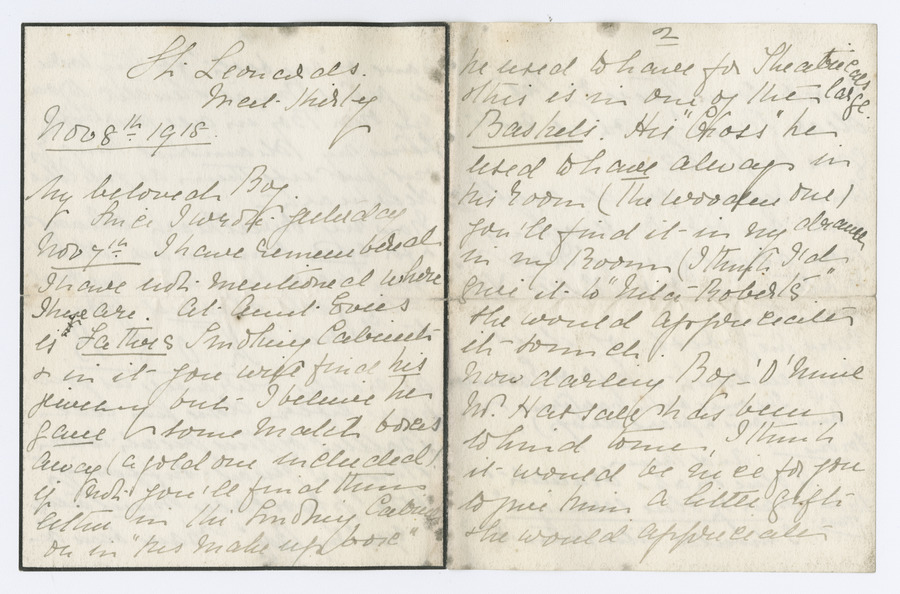 St. Leonards.
West Kirby
Nov 8th 1918.
My beloved Boy.
Since I wrote yesterday
Nov 7th I have remembered
I have not mentioned where
are. At Aunt Evies
is Fathers Smoking Cabinet
& in it you will find his
jewelry but I believe he
gave some match boxes
away (a gold one included)
if not you'll find them
either in the Smoking Cabinet
or in "his make up box"
2
he used to have for Theatricals
this is in one of the large
Baskets. His "Cross" he
used to have always in
his Room (the wooden one)
you'll find it in my drawer
in my Room (I think I'd
give it to "Nita Roberts"
she would appreciate
it so much.
Now darling Boy 'O' Mine
Mr. has been
so kind to me, I think
it would be nice for you
to give him a little gift
& he would appreciate